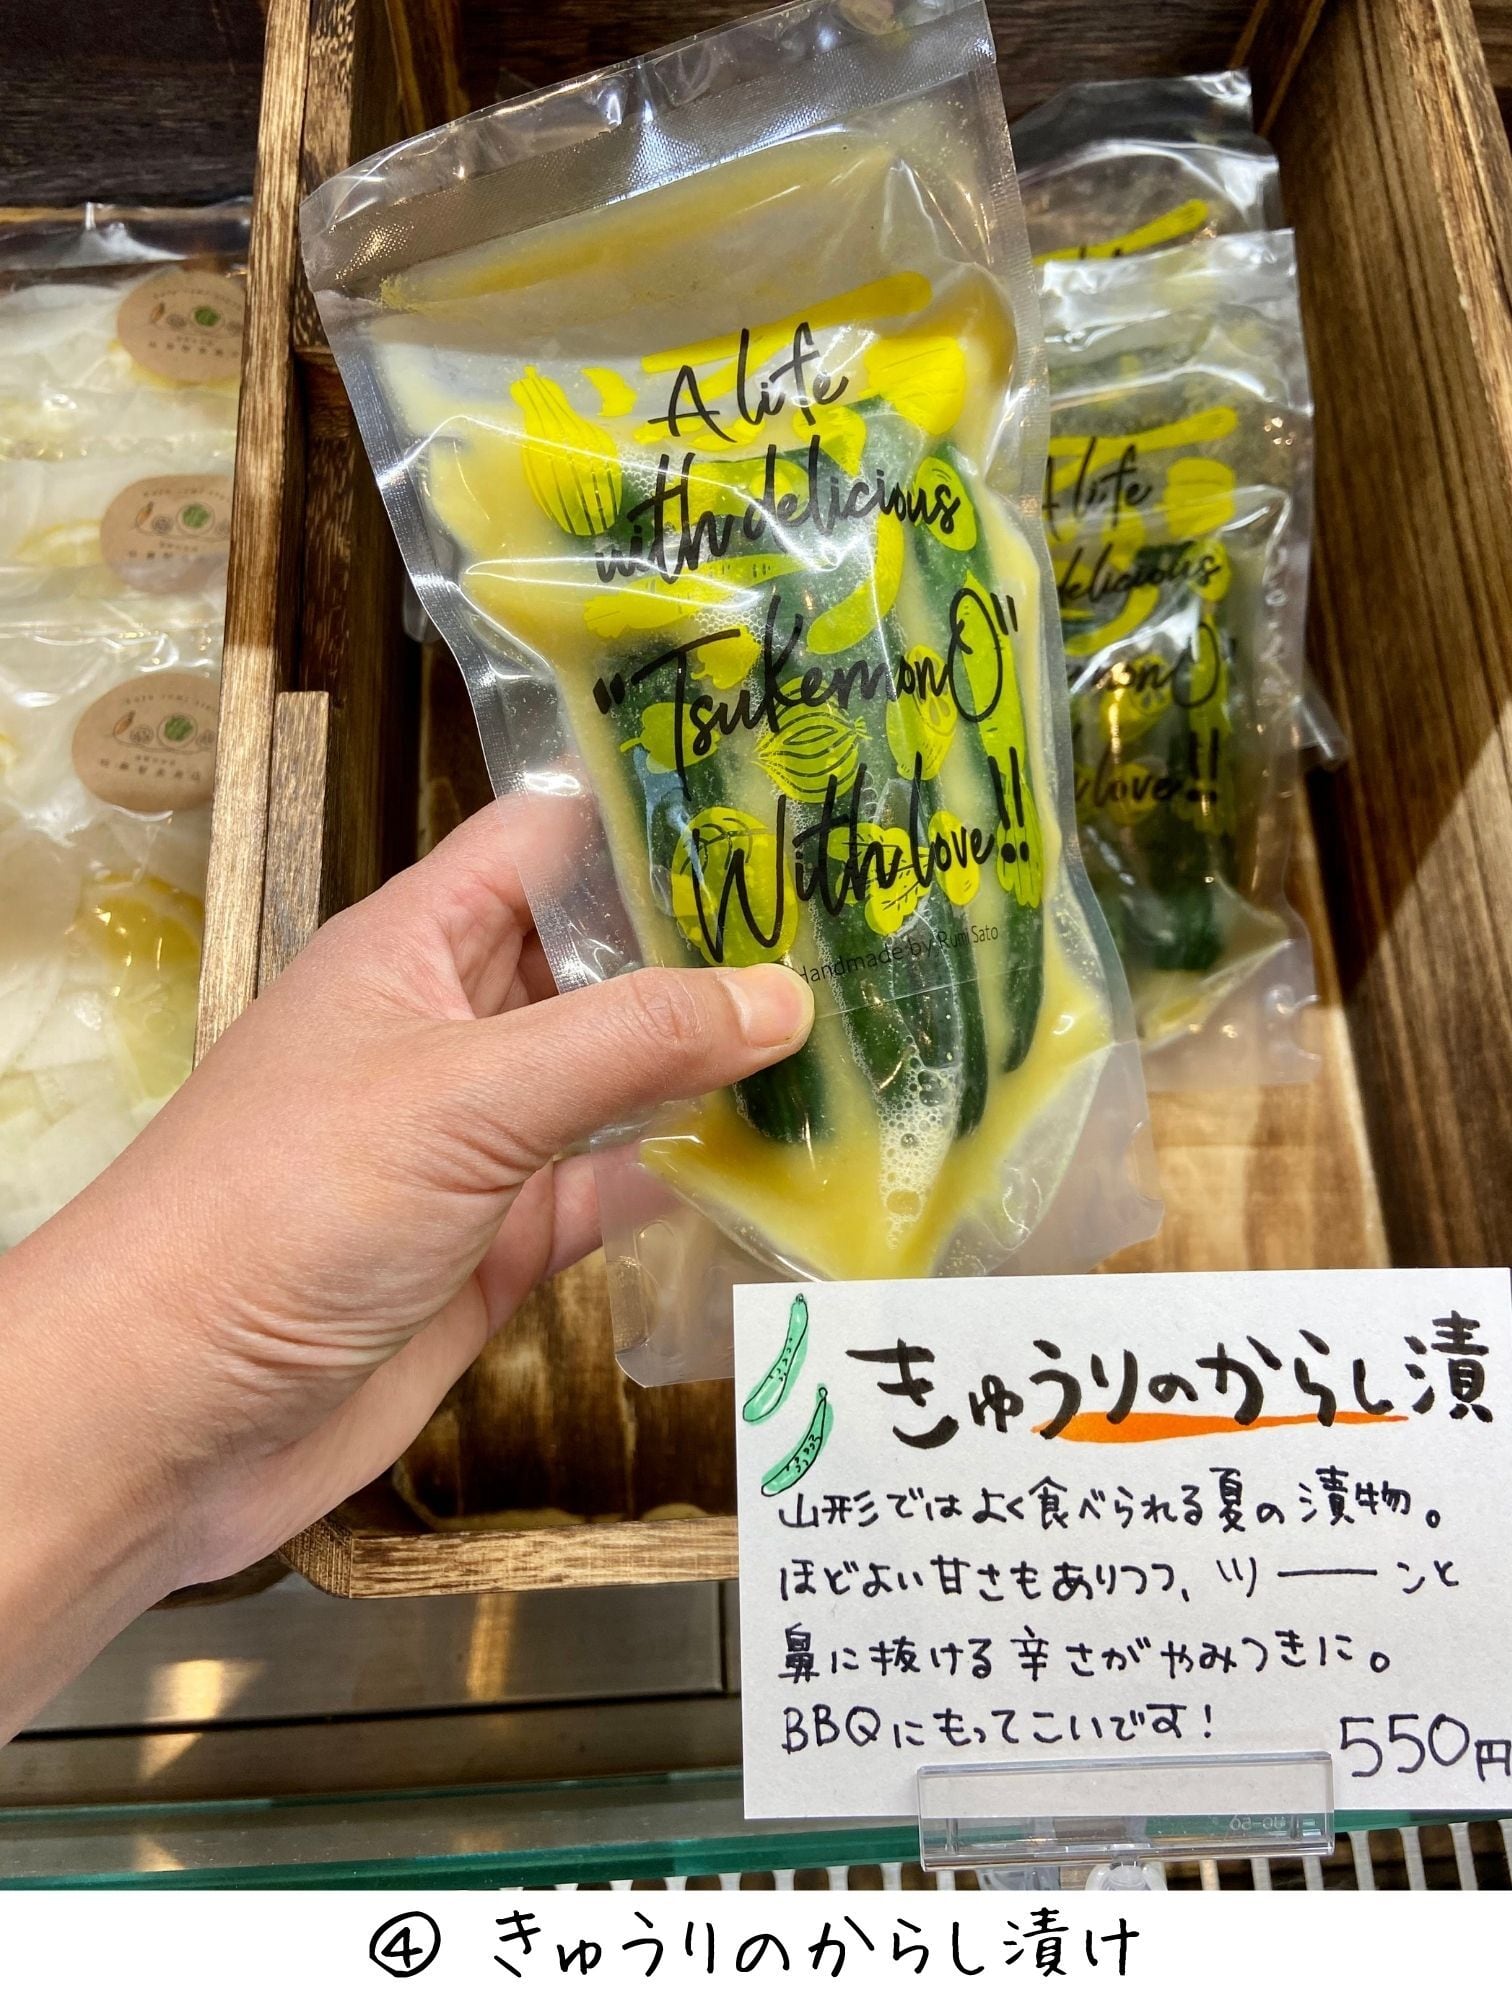 A life
with delicious
"TsukemonO"
With love!!
Handmade by Rumi Sato
A life
delicious
love!!
きゅうりのからし漬
山形ではよく食べられる夏の漬物。
ほどよい甘さもありつつ、ツーーンと
鼻に抜ける辛さがやみつきに。
BBQにもってこいです!
550円
④ きゅうりのからし漬け